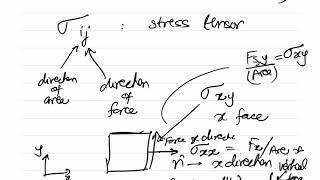 σij : stress tensor
direction of area
direction of force
Fsy/(Area) = σxy
σxy
x face
Force x direct
σxx = Fx/Area x
n → x direction
vertical force
y